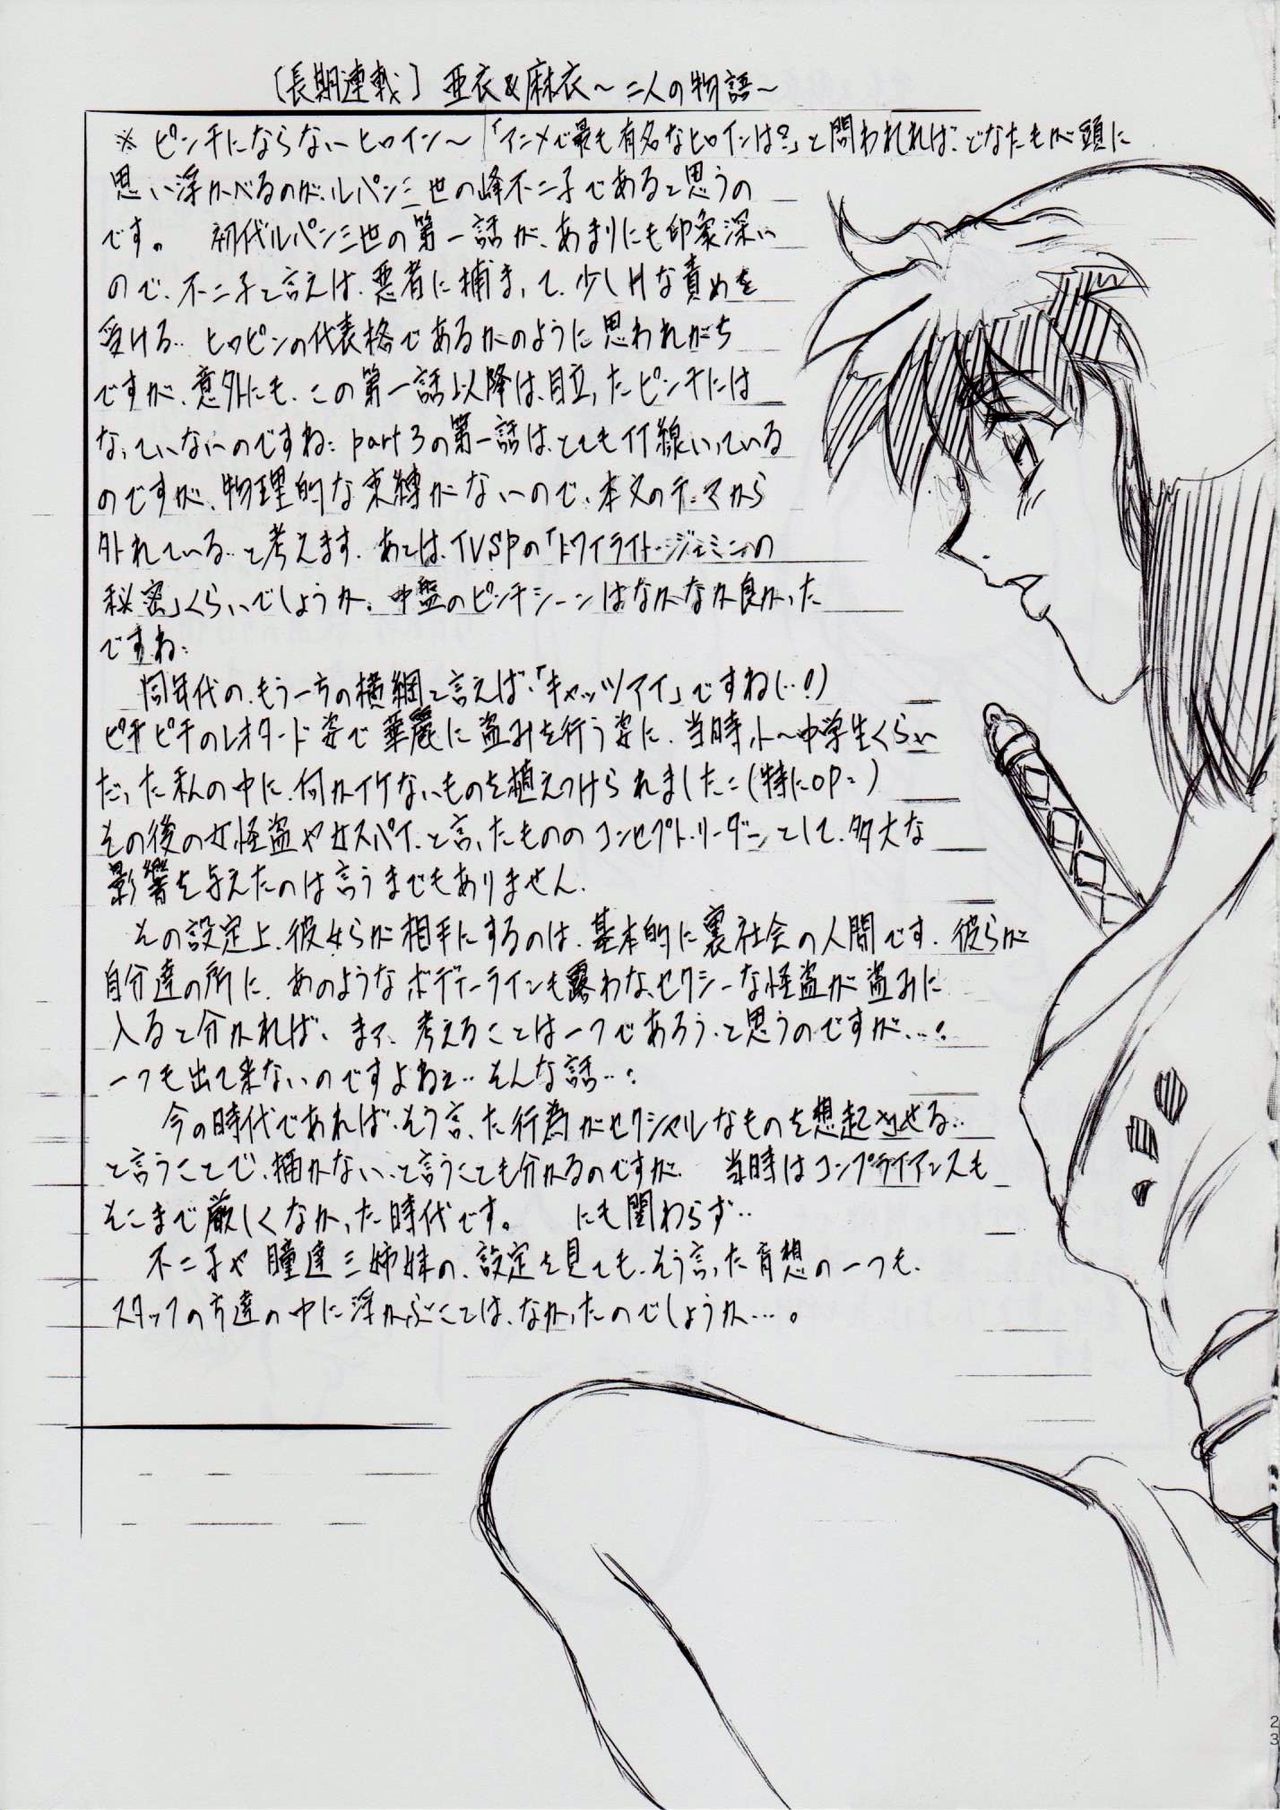 〔長期連載〕 亜衣&麻衣～二人の物語～
※ ピンチにならないヒロイン～ 「アニメで最も有名なヒロインは?」と問われれば、どなたもが頭に
思い浮かべるのが、ルパン三世の峰不二子であると思うの
です。 初代ルパン三世の第一話が、あまりにも印象深い
ので、不二子と言えば、悪者に捕まって、少しHな責めを
受ける‥ヒロピンの代表格であるかのように思われがち
ですが、意外にも、この第一話以降は、目立ったピンチには
なっていないのですね: part3の第一話は、とてもイイ線いっている
のですが、物理的な束縛がないので、本文のテーマから
外れている‥と考えます。あとは、TVSPの「トワイライト・ジェミニの
秘密」くらいでしょうか。中盤のピンチシーンはなかなか良かった
ですね:
同年代の、もう一方の横綱と言えば、「キャッツアイ」ですね(‥!)
ピチピチのレオタード姿で華麗に盗みを行う姿に、当時、小～中学生くらい
だった私の中に、何かイケないものを植えつけられました:(特にOP:)
その後の女怪盗や女スパイ、と言ったもののコンセプト・リーダーとして、多大な
影響を与えたのは言うまでもありません。
その設定上、彼女らが相手にするのは、基本的に裏社会の人間です。彼らが
自分達の所に、あのようなボディーラインも露わな、セクシーな怪盗が盗みに
入ると分かれば、まず、考えることは一つであろう、と思うのですが‥‥!
一つも出て来ないのですよねぇ‥そんな話‥!
今の時代であれば、そう言った行為がセクシャルなものを想起させる‥
と言うことで、描かない、と言うことも分かるのですが、 当時はコンプライアンスも
そこまで厳しくなかった時代です。 にも関わらず‥
不二子や瞳達三姉妹の、設定を見ても、そう言った妄想の一つも、
スタッフの方達の中に浮かぶことは、なかったのでしょうか‥‥。
23